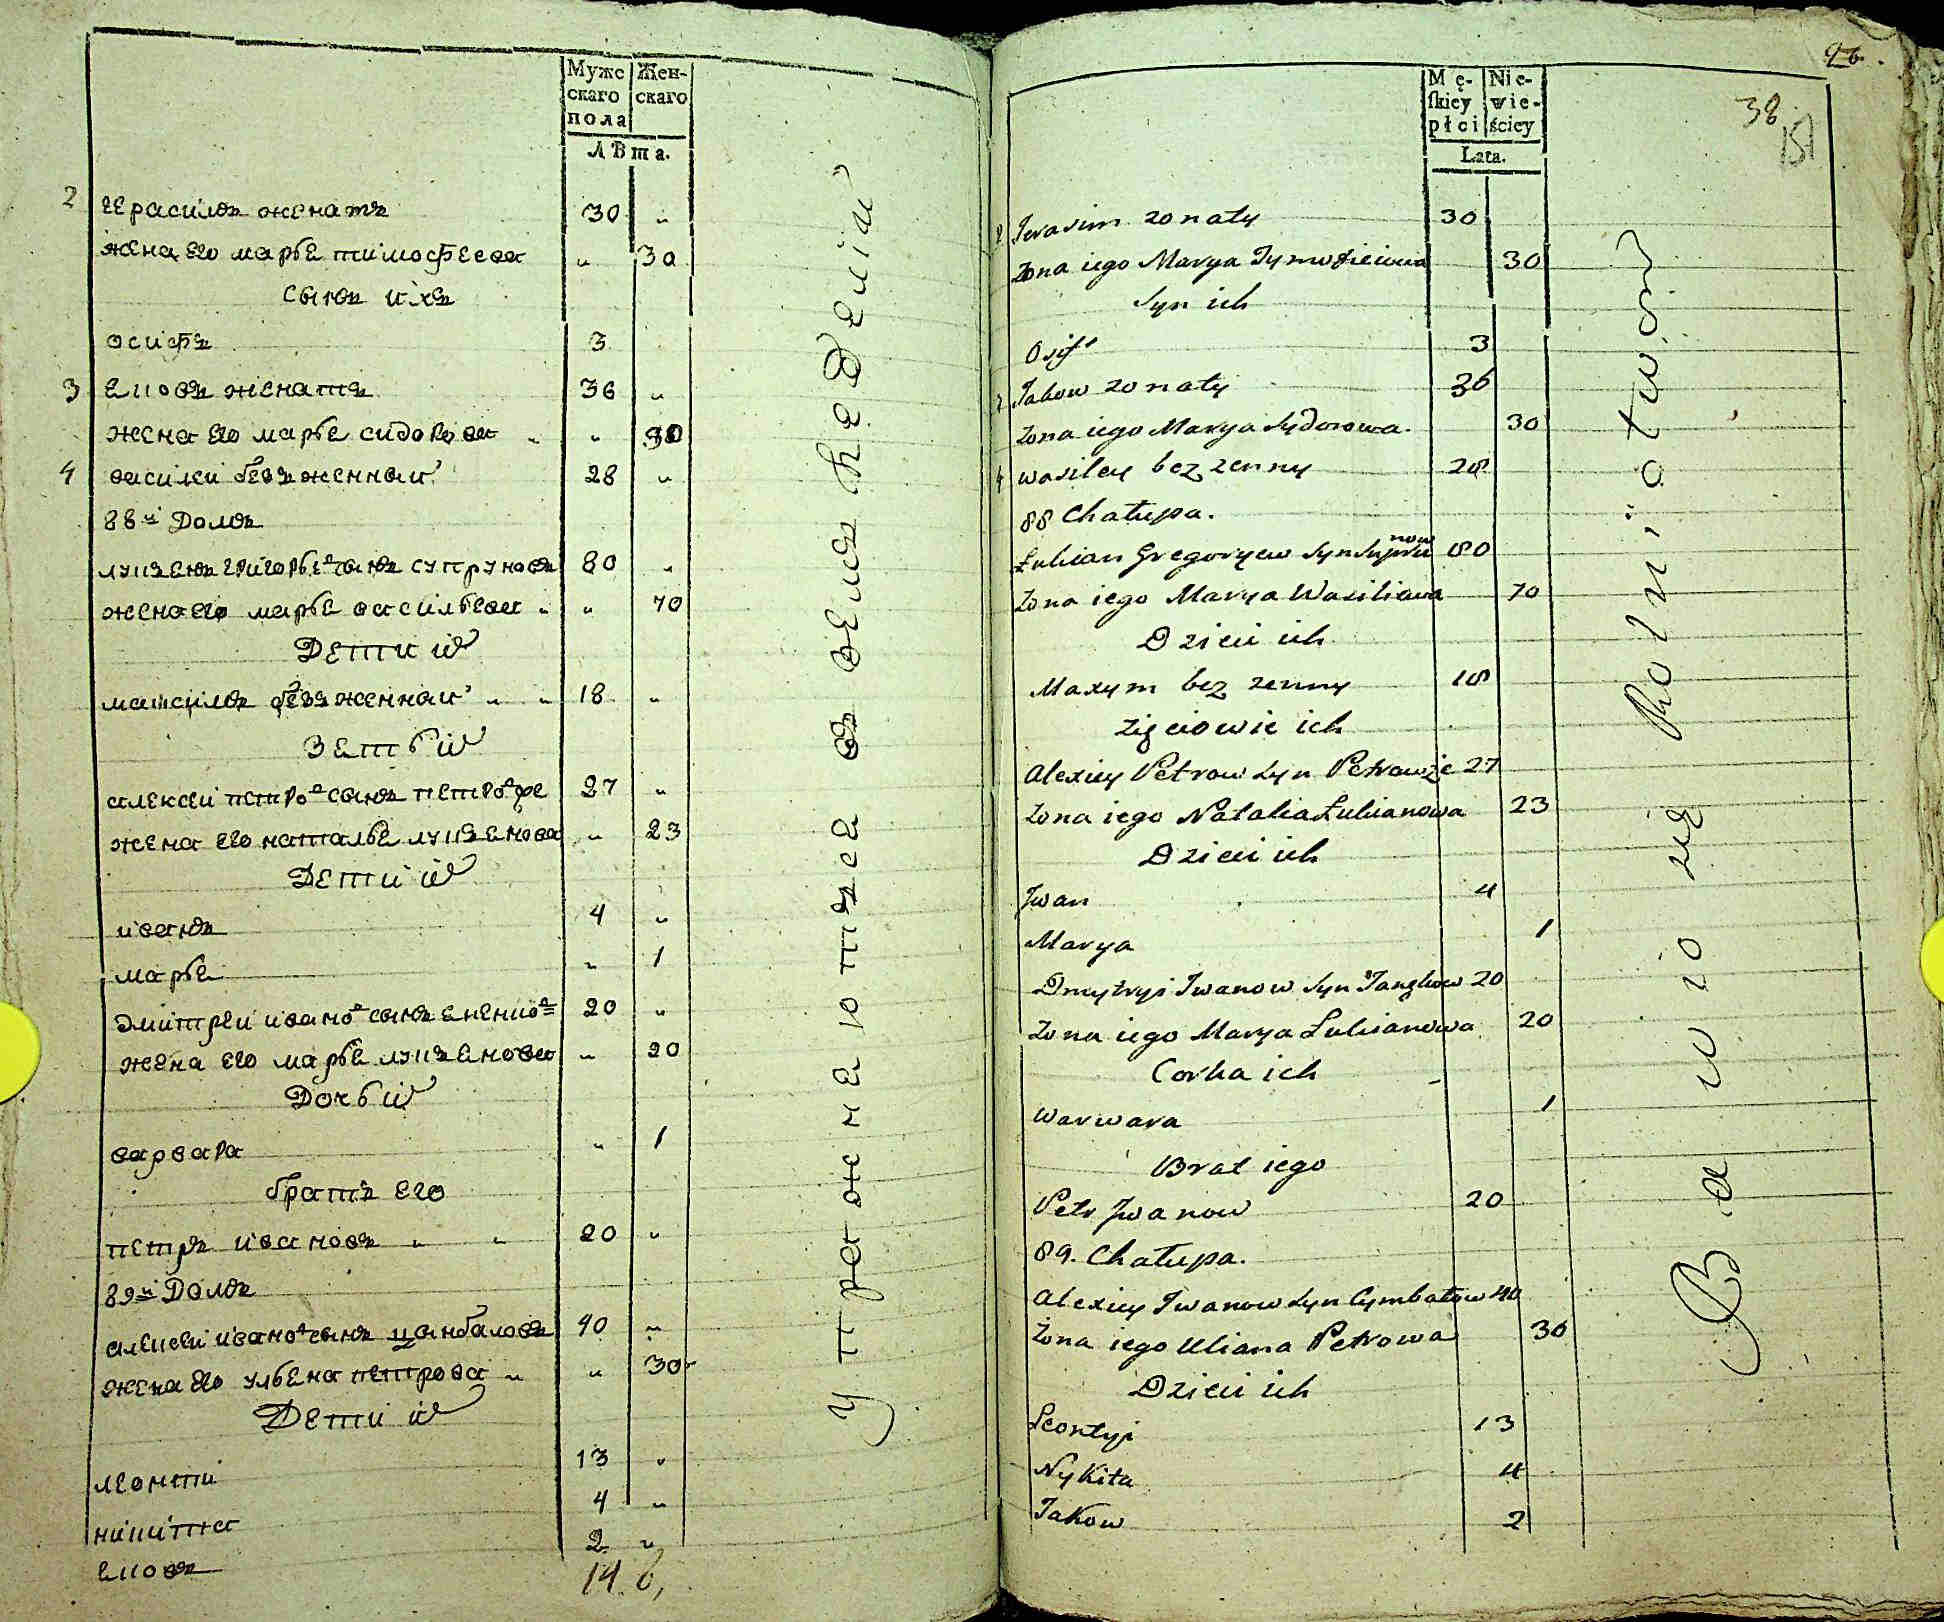 Мужс Жен-
скаго скаго
пола
Лѣта.
2 герасимъ женатъ 30 „
жена его марѣе тимофеева „ 30
сынъ ихъ
осифъ 3
3 ековъ женатъ 36 „
жена его марѣе сидорова „ „ 30
4 василей безъженнай 28 „
88й Домъ
лукѣенъ григорьевъ сынъ супруновъ 80 „
жена его марѣе васильева „ „ 70
Дети их
максимъ безъженнай „ „ 18 „
Зетьѣ их
алексей петровъ сынъ 27 „
жена его наталье лукѣенова „ 23
Дети их
иванъ 4 „
марѣе „ 1
дмитрей иванов сынъ 20 „
жена его марѣе лукѣенова „ 20
Дочь их
варвара „ 1
братъ его
петръ ивановъ „ „ 20 „
89й Домъ
алексей иванов сынъ цынбаловъ 40 „
жена его ульена петрова „ „ 30
Дети их
леонти 13 „
никита 4 „
ековъ 2 „
14. 6,
Упражнеютца въ земледелии
96.
38
151
Mę- Nie-
skiey wie-
płci ściey
Lata.
2 Jerasim zonaty 30
Żona iego Marya Tymofieiewa 30
Syn ich
Osif 3
3 Jakow zonaty 36
Żona iego Marya Sydorowa. 30
4 Wasiley bez zenny 28
88 Chałupa.
Łukian Gregoryew Syn Supru
now 80
Żona iego Marya Wasiliewa 70
Dzieci ich
Maxym bez zenny 18
Zięciowie ich
Alexiey Petrow Syn 27
Żona iego Natalia Łukianowa 23
Dzieci ich
Jwan 4
Marya 1
Dmytryi Jwanow Syn 20
Żona iego Marya Łukianowa 20
Corka ich
Warwara 1
Brat iego
Petr Jwanow 20
89. Chałupa.
Alexiey Jwanow Syn Cymbałow 40
Żona iego Uliana Petrowa 30
Dzieci ich
Leontyi 13
Nykita 4
Jakow 2
Bawio się Rolniotwom